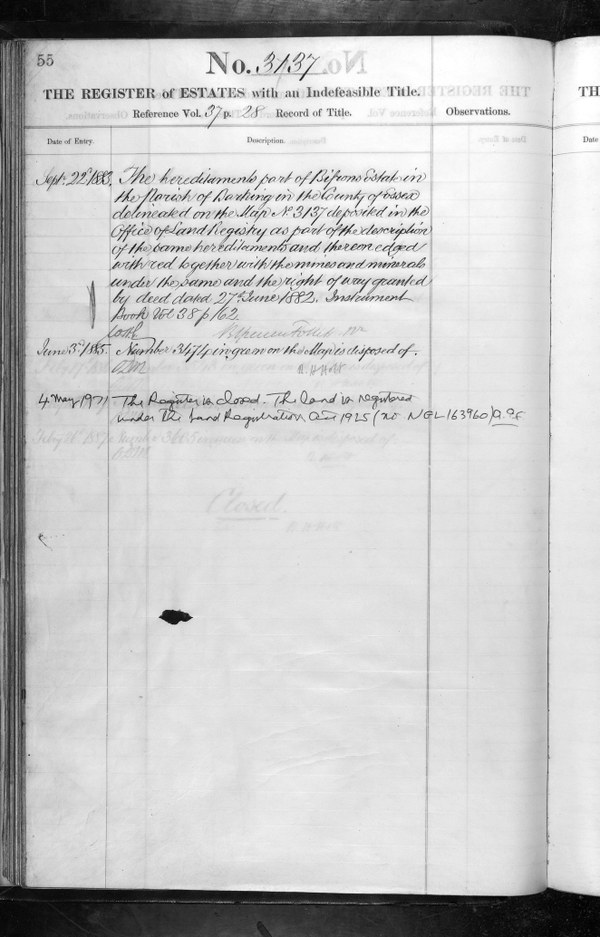 55
No. 3137
THE REGISTER of ESTATES with an Indefeasible Title.
Reference Vol. 37 p. 28 Record of Title.
Observations.
Date of Entry.
Description.
Sept. 22d 1883.
The hereditaments part of Bifrons Estate in
the parish of Barking in the County of Essex
delineated on the Map No 3137 deposited in the
Office of Land Registry as part of the description
of the same hereditaments and thereon edged
with red together with the mines and minerals
under the same and the right of way granted
by deed dated 27th June 1882. Instrument
Book Vol 38 p 162.
June 3rd 1885. Number 3474 in green on the Map is disposed of.
4 May 1971 The Register is closed. The land is registered
under the Land Registration Act 1925 (no NGL 163960)
Closed.
TH
Date